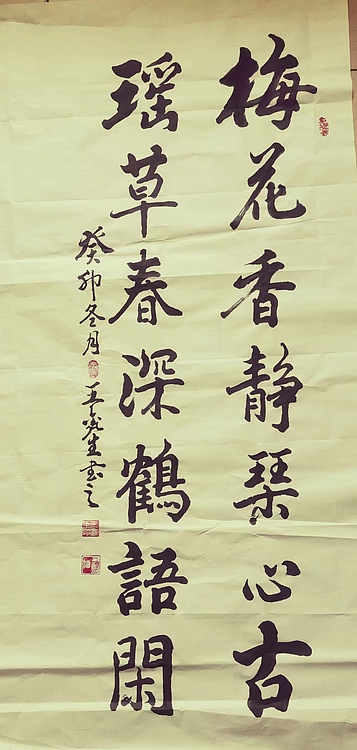 梅花香静琹心古
瑶草春深鶴語閑
癸卯冬月 王 生书之